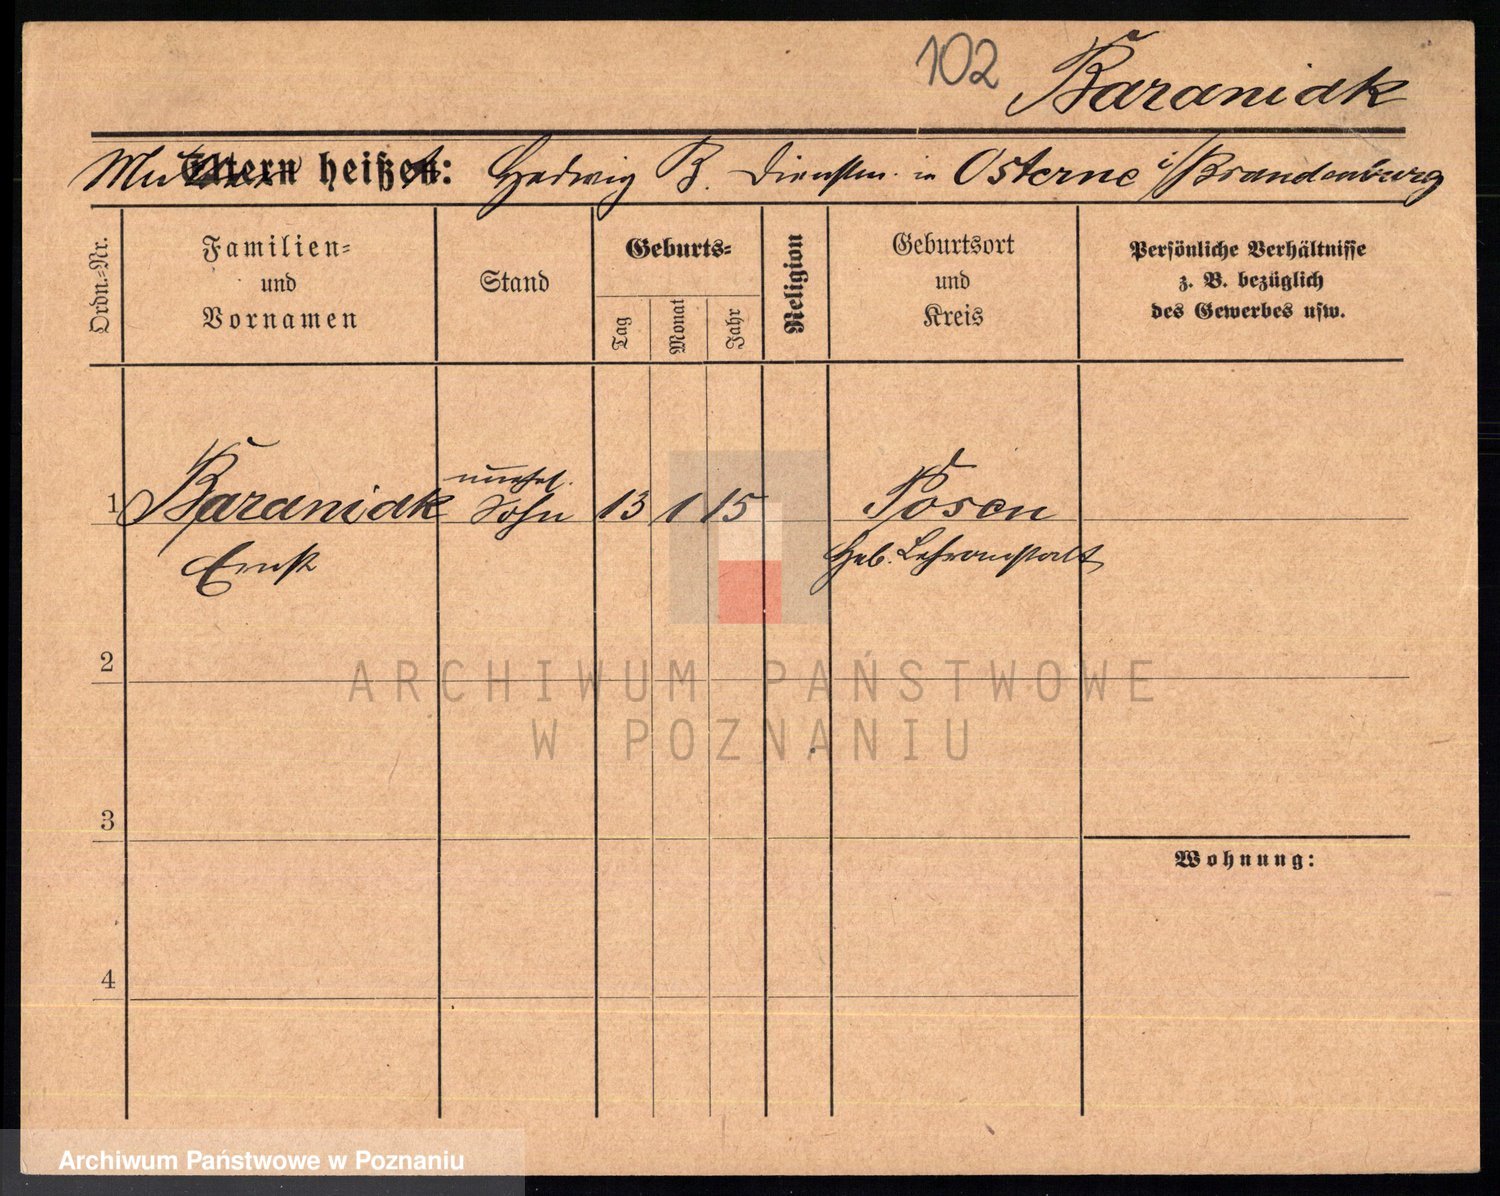 102
Baraniak
Mutter heißt: Hedwig B. Dienstm. in Osterne i/Brandenburg
Eltern heißen:
Ordn.-Nr.
Familien-
und
Vornamen
Stand
Geburts-
Tag
Monat
Jahr
Religion
Geburtsort
und
Kreis
Persönliche Verhältnisse
z. B. bezüglich
des Gewerbes usw.
1 Baraniak unehel. Sohn 13 1 15 Posen
Ernst Heb. Lehranstalt
2
3
4
Wohnung:
ARCHIWUM PAŃSTWOWE
W POZNANIU
Archiwum Państwowe w Poznaniu